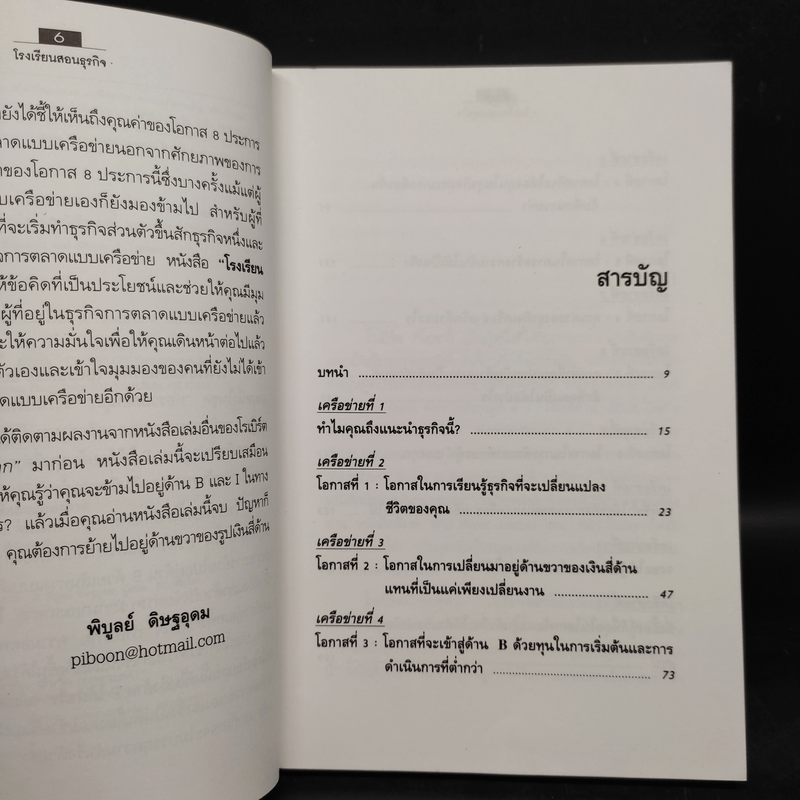 6
โรงเรียนสอนธุรกิจ
ยังได้ชี้ให้เห็นถึงคุณค่าของโอกาส 8 ประการ
ลาดแบบเครือข่ายนอกจากศักยภาพของการ
ของโอกาส 8 ประการนี้ซึ่งบางครั้งแม้แต่ผู้
บเครือข่ายเองก็ยังมองข้ามไป สำหรับผู้ที่
ที่จะเริ่มทำธุรกิจส่วนตัวขึ้นสักธุรกิจหนึ่งและ
จการตลาดแบบเครือข่าย หนังสือ "โรงเรียน
ห้ข้อคิดที่เป็นประโยชน์และช่วยให้คุณมีมุม
ผู้ที่อยู่ในธุรกิจการตลาดแบบเครือข่ายแล้ว
ะให้ความมั่นใจเพื่อให้คุณเดินหน้าต่อไปแล้ว
ตัวเองและเข้าใจมุมมองของคนที่ยังไม่ได้เข้า
ดแบบเครือข่ายอีกด้วย
ด้ติดตามผลงานจากหนังสือเล่มอื่นของโรเบิร์ต
มาก่อน หนังสือเล่มนี้จะเปรียบเสมือน
ห้คุณรู้ว่าคุณจะข้ามไปอยู่ด้าน B และ I ในทาง
ร? แล้วเมื่อคุณอ่านหนังสือเล่มนี้จบ ปัญหาก็
คุณต้องการย้ายไปอยู่ด้านขวาของรูปเงินสี่ด้าน
พิบูลย์ ดิษฐอุดม
piboon@hotmail.com
สารบัญ
บทนำ ........ 9
เครือข่ายที่ 1
ทำไมคุณถึงแนะนำธุรกิจนี้? ........ 15
เครือข่ายที่ 2
โอกาสที่ 1 : โอกาสในการเรียนรู้ธุรกิจที่จะเปลี่ยนแปลง
ชีวิตของคุณ ........ 23
เครือข่ายที่ 3
โอกาสที่ 2 : โอกาสในการเปลี่ยนมาอยู่ด้านขวาของเงินสี่ด้าน
แทนที่เป็นแค่เพียงเปลี่ยนงาน ........ 47
เครือข่ายที่ 4
โอกาสที่ 3 : โอกาสที่จะเข้าสู่ด้าน B ด้วยทุนในการเริ่มต้นและการ
ดำเนินการที่ต่ำกว่า ........ 73